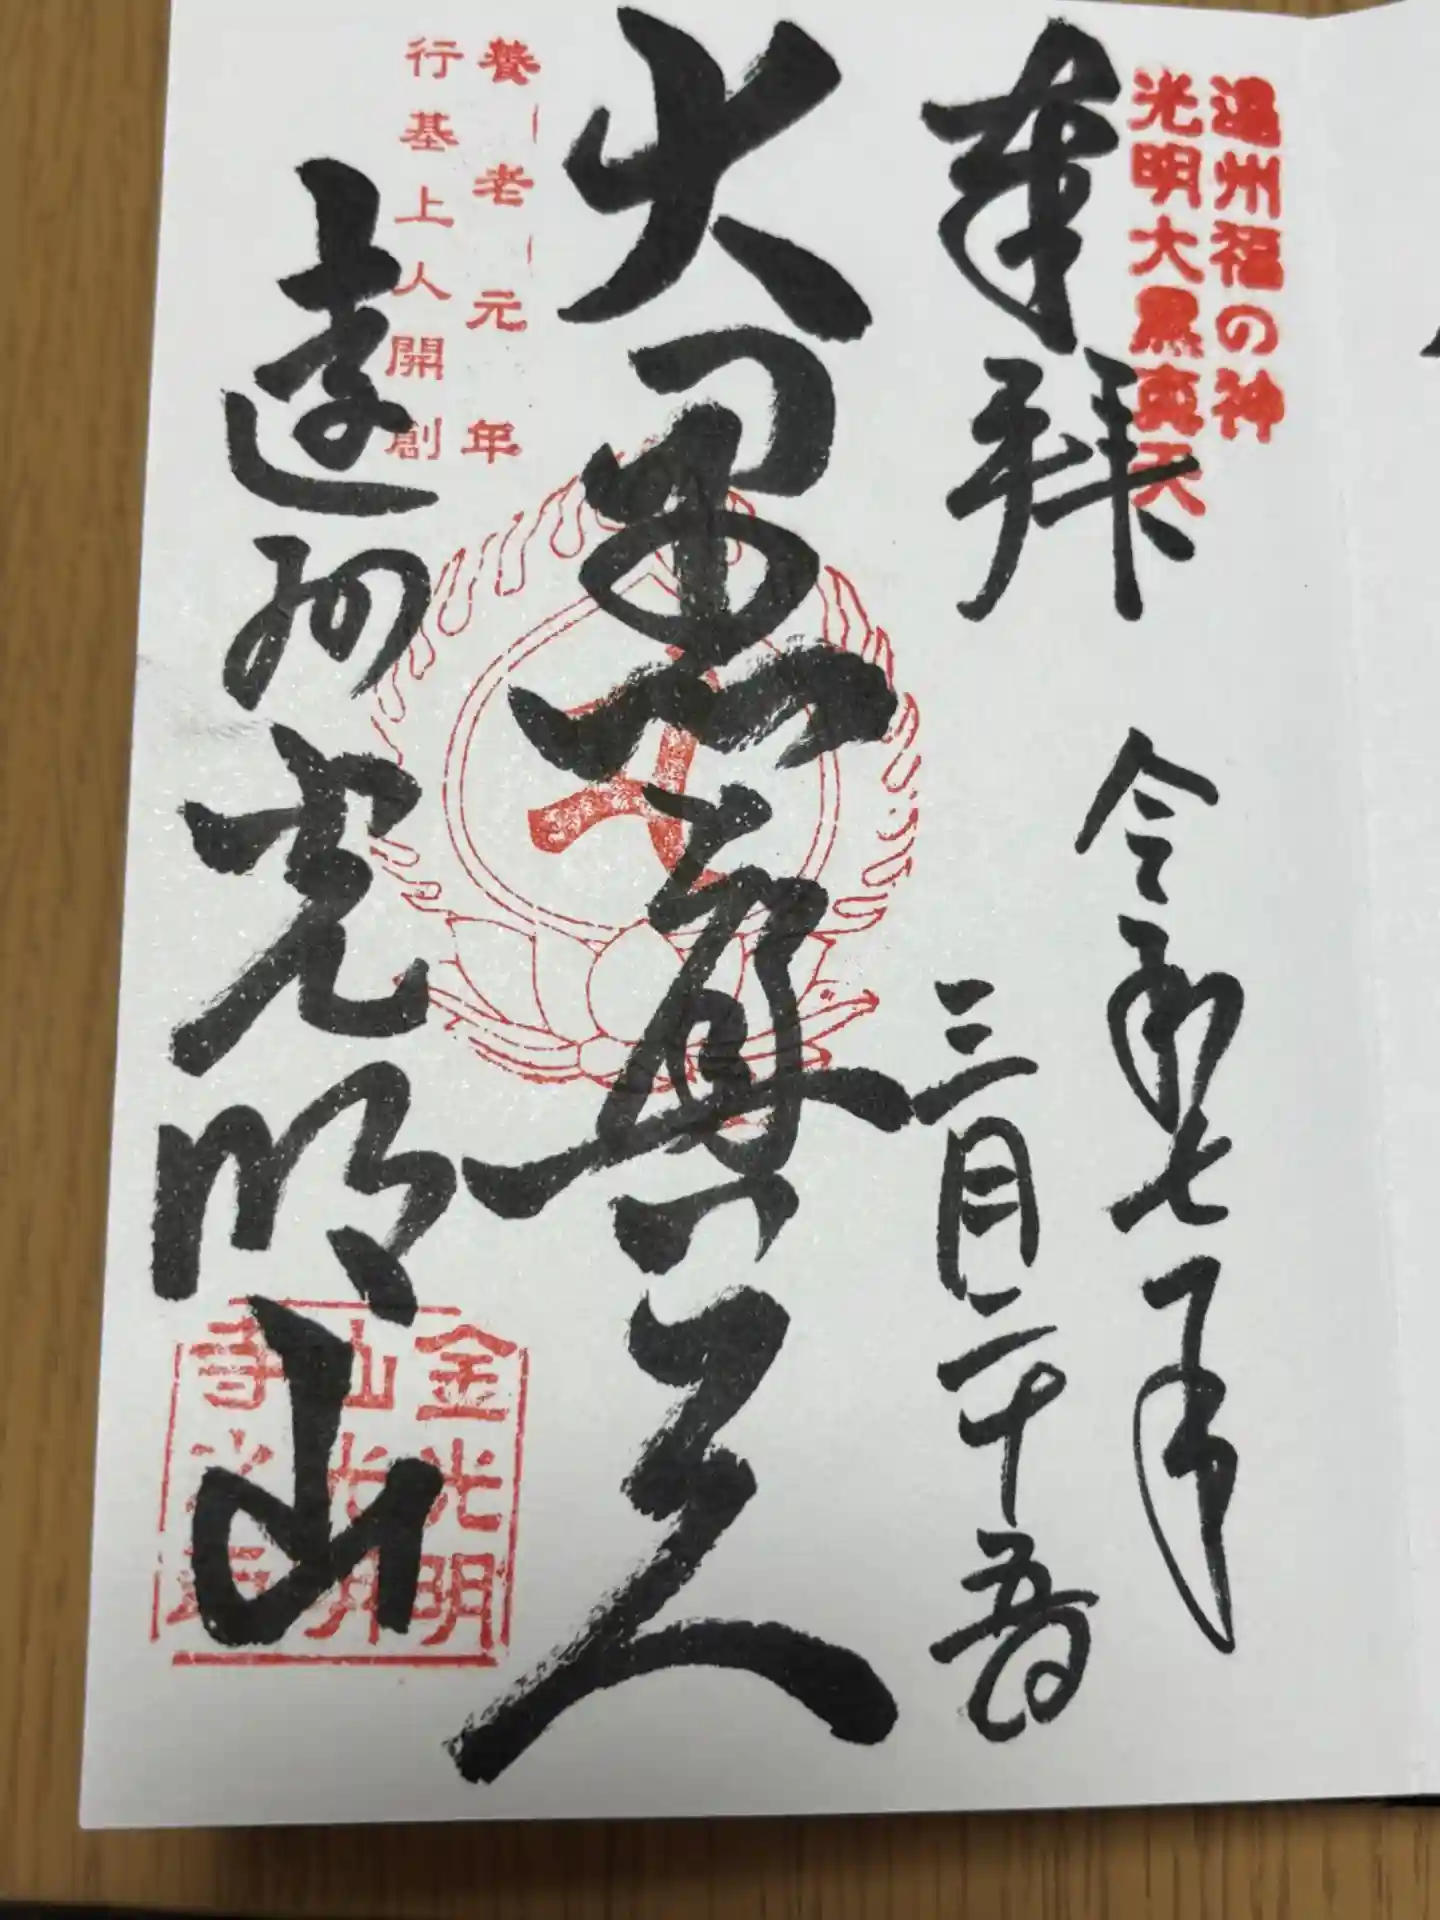 遠州福の神
光明大黒真天
奉拝
令和七年
三月二十五日
大黒真天
養老元年
行基上人開創
遠州光明山
金光明
山光明
寺光明